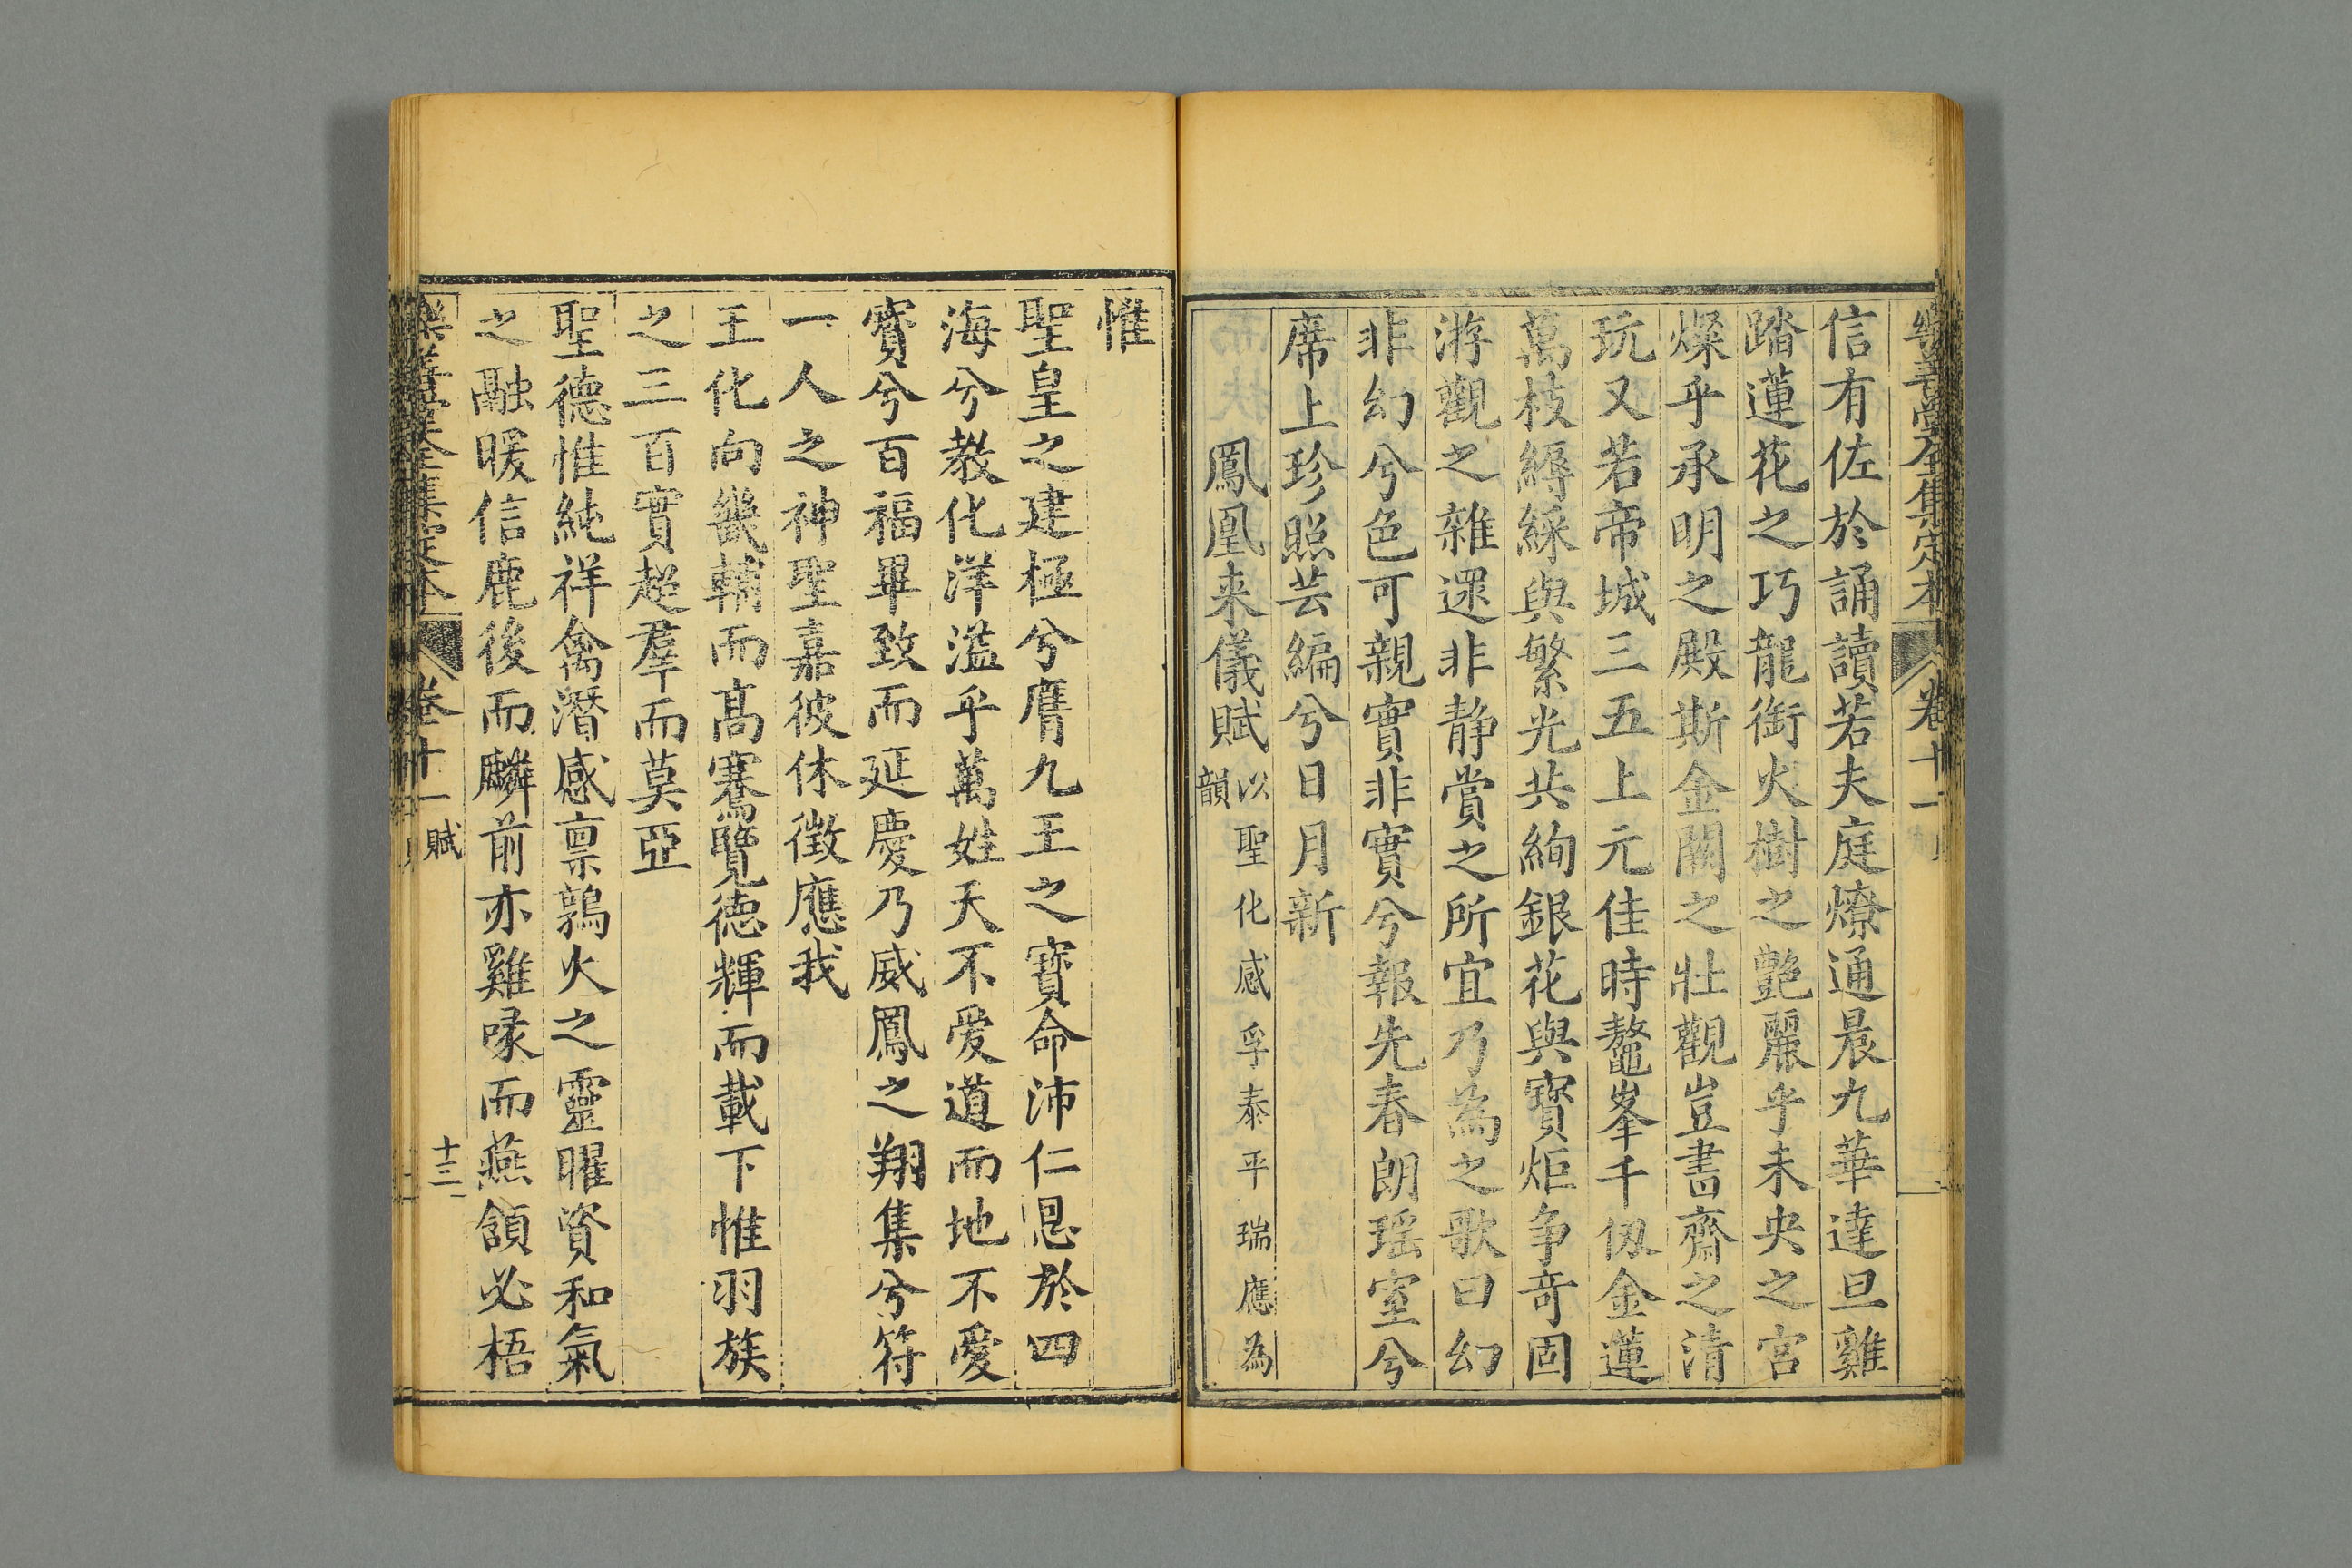 樂善堂全集定本 卷十一
信有佐於誦讀若夫庭燎通晨九華達旦雞
踏蓮花之巧龍銜火樹之艷麗乎未央之宮
燦乎承明之殿斯金闕之壯觀豈書齋之清
玩又若帝城三五上元佳時鼇峯千仭金蓮
萬枝縟綵與繁光共絢銀花與寳炬争奇固
游觀之雜遝非静賞之所宜乃為之歌曰幻
非幻兮色可親實非實兮報先春朗瑶室兮
席上珍照芸編兮日月新
鳳凰来儀賦 以聖化感孚泰平瑞應為
韻
惟
聖皇之建極兮膺九王之寳命沛仁恩於四
海兮教化洋溢乎萬姓天不爱道而地不愛
寳兮百福畢致而延慶乃威鳳之翔集兮符
一人之神聖嘉彼休徴應我
王化向畿輔而髙騫覽徳輝而載下惟羽族
之三百實超羣而莫亞
聖德惟純祥禽潛感禀鶉火之靈曜資和氣
之融暖信鹿後而麟前亦雞喙而燕頷必梧
樂善堂全集定本 卷十一 賦 十三